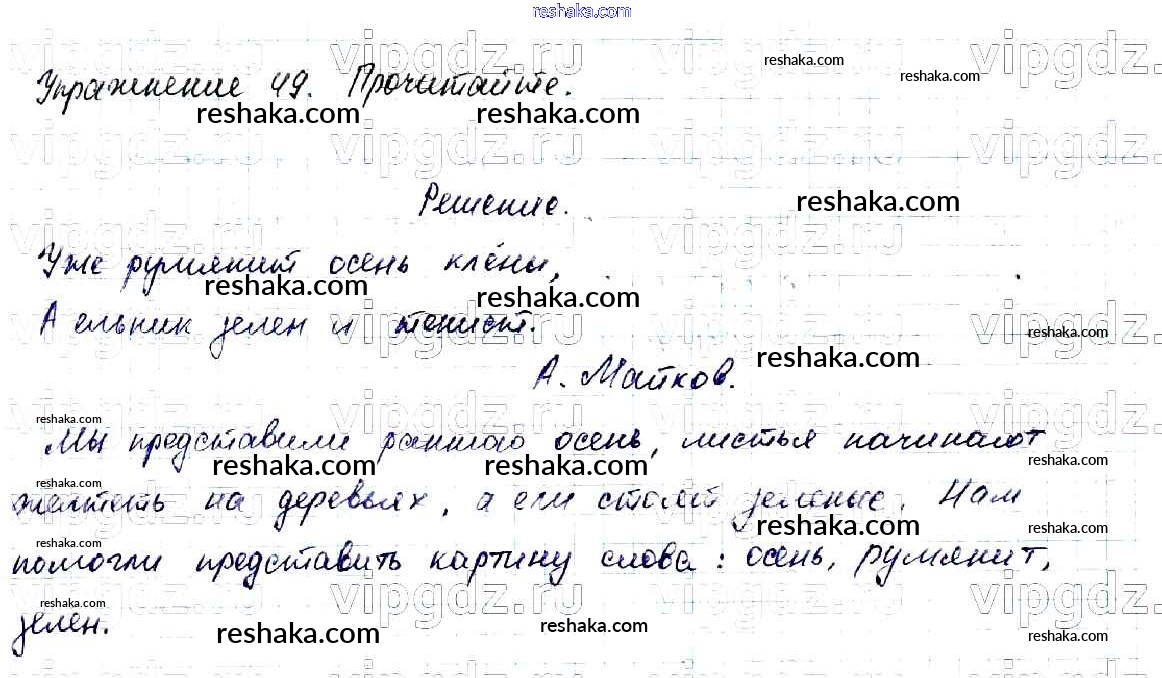 reshaka.com
Упражнение 49. Прочитайте.
Решение.
Уже румянит осень клёны,
А ельник зелен и тенист.
А. Майков.
Мы представили раннюю осень, листья начинают
желтеть на деревьях, а ели стоят зеленые. Нам
помогли представить картину слова: осень, румянит,
зелен.